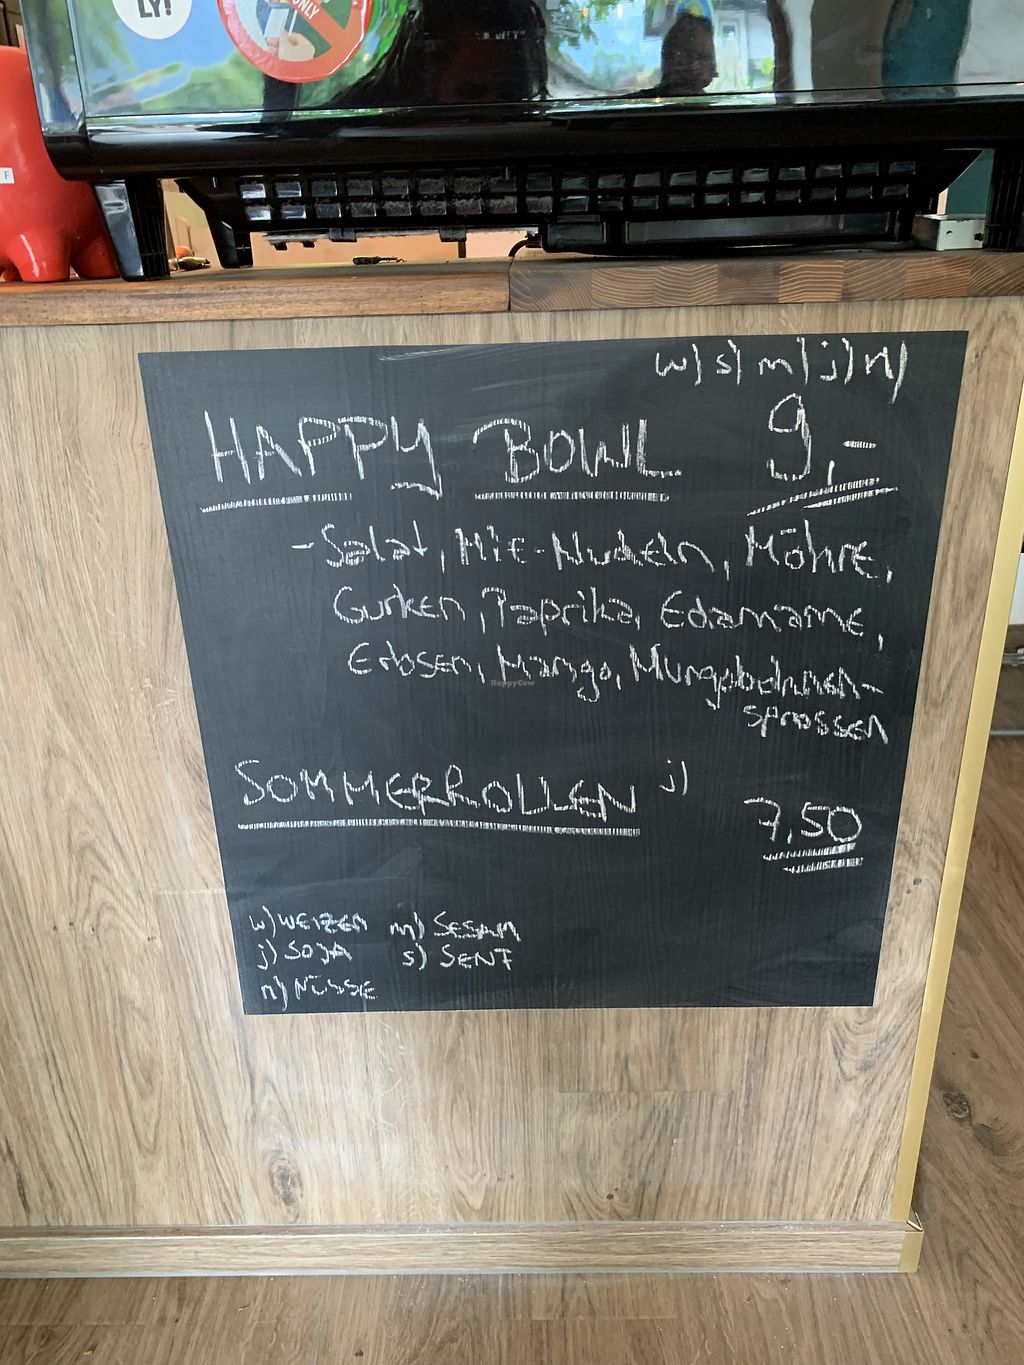 LY!
ONLY
F
w) s) m) j) n)
HAPPY BOWL 9,-
-Salat, MiE-Nudeln, Möhre,
Gurken, Paprika, Edamame,
Erbsen, Mango, Mungobohnen-
sprossen
HappyCow
SOMMERROLLEN j) 7,50
w) WEIZEN m) SESAM
j) SOJA s) SENF
n) NÜSSE